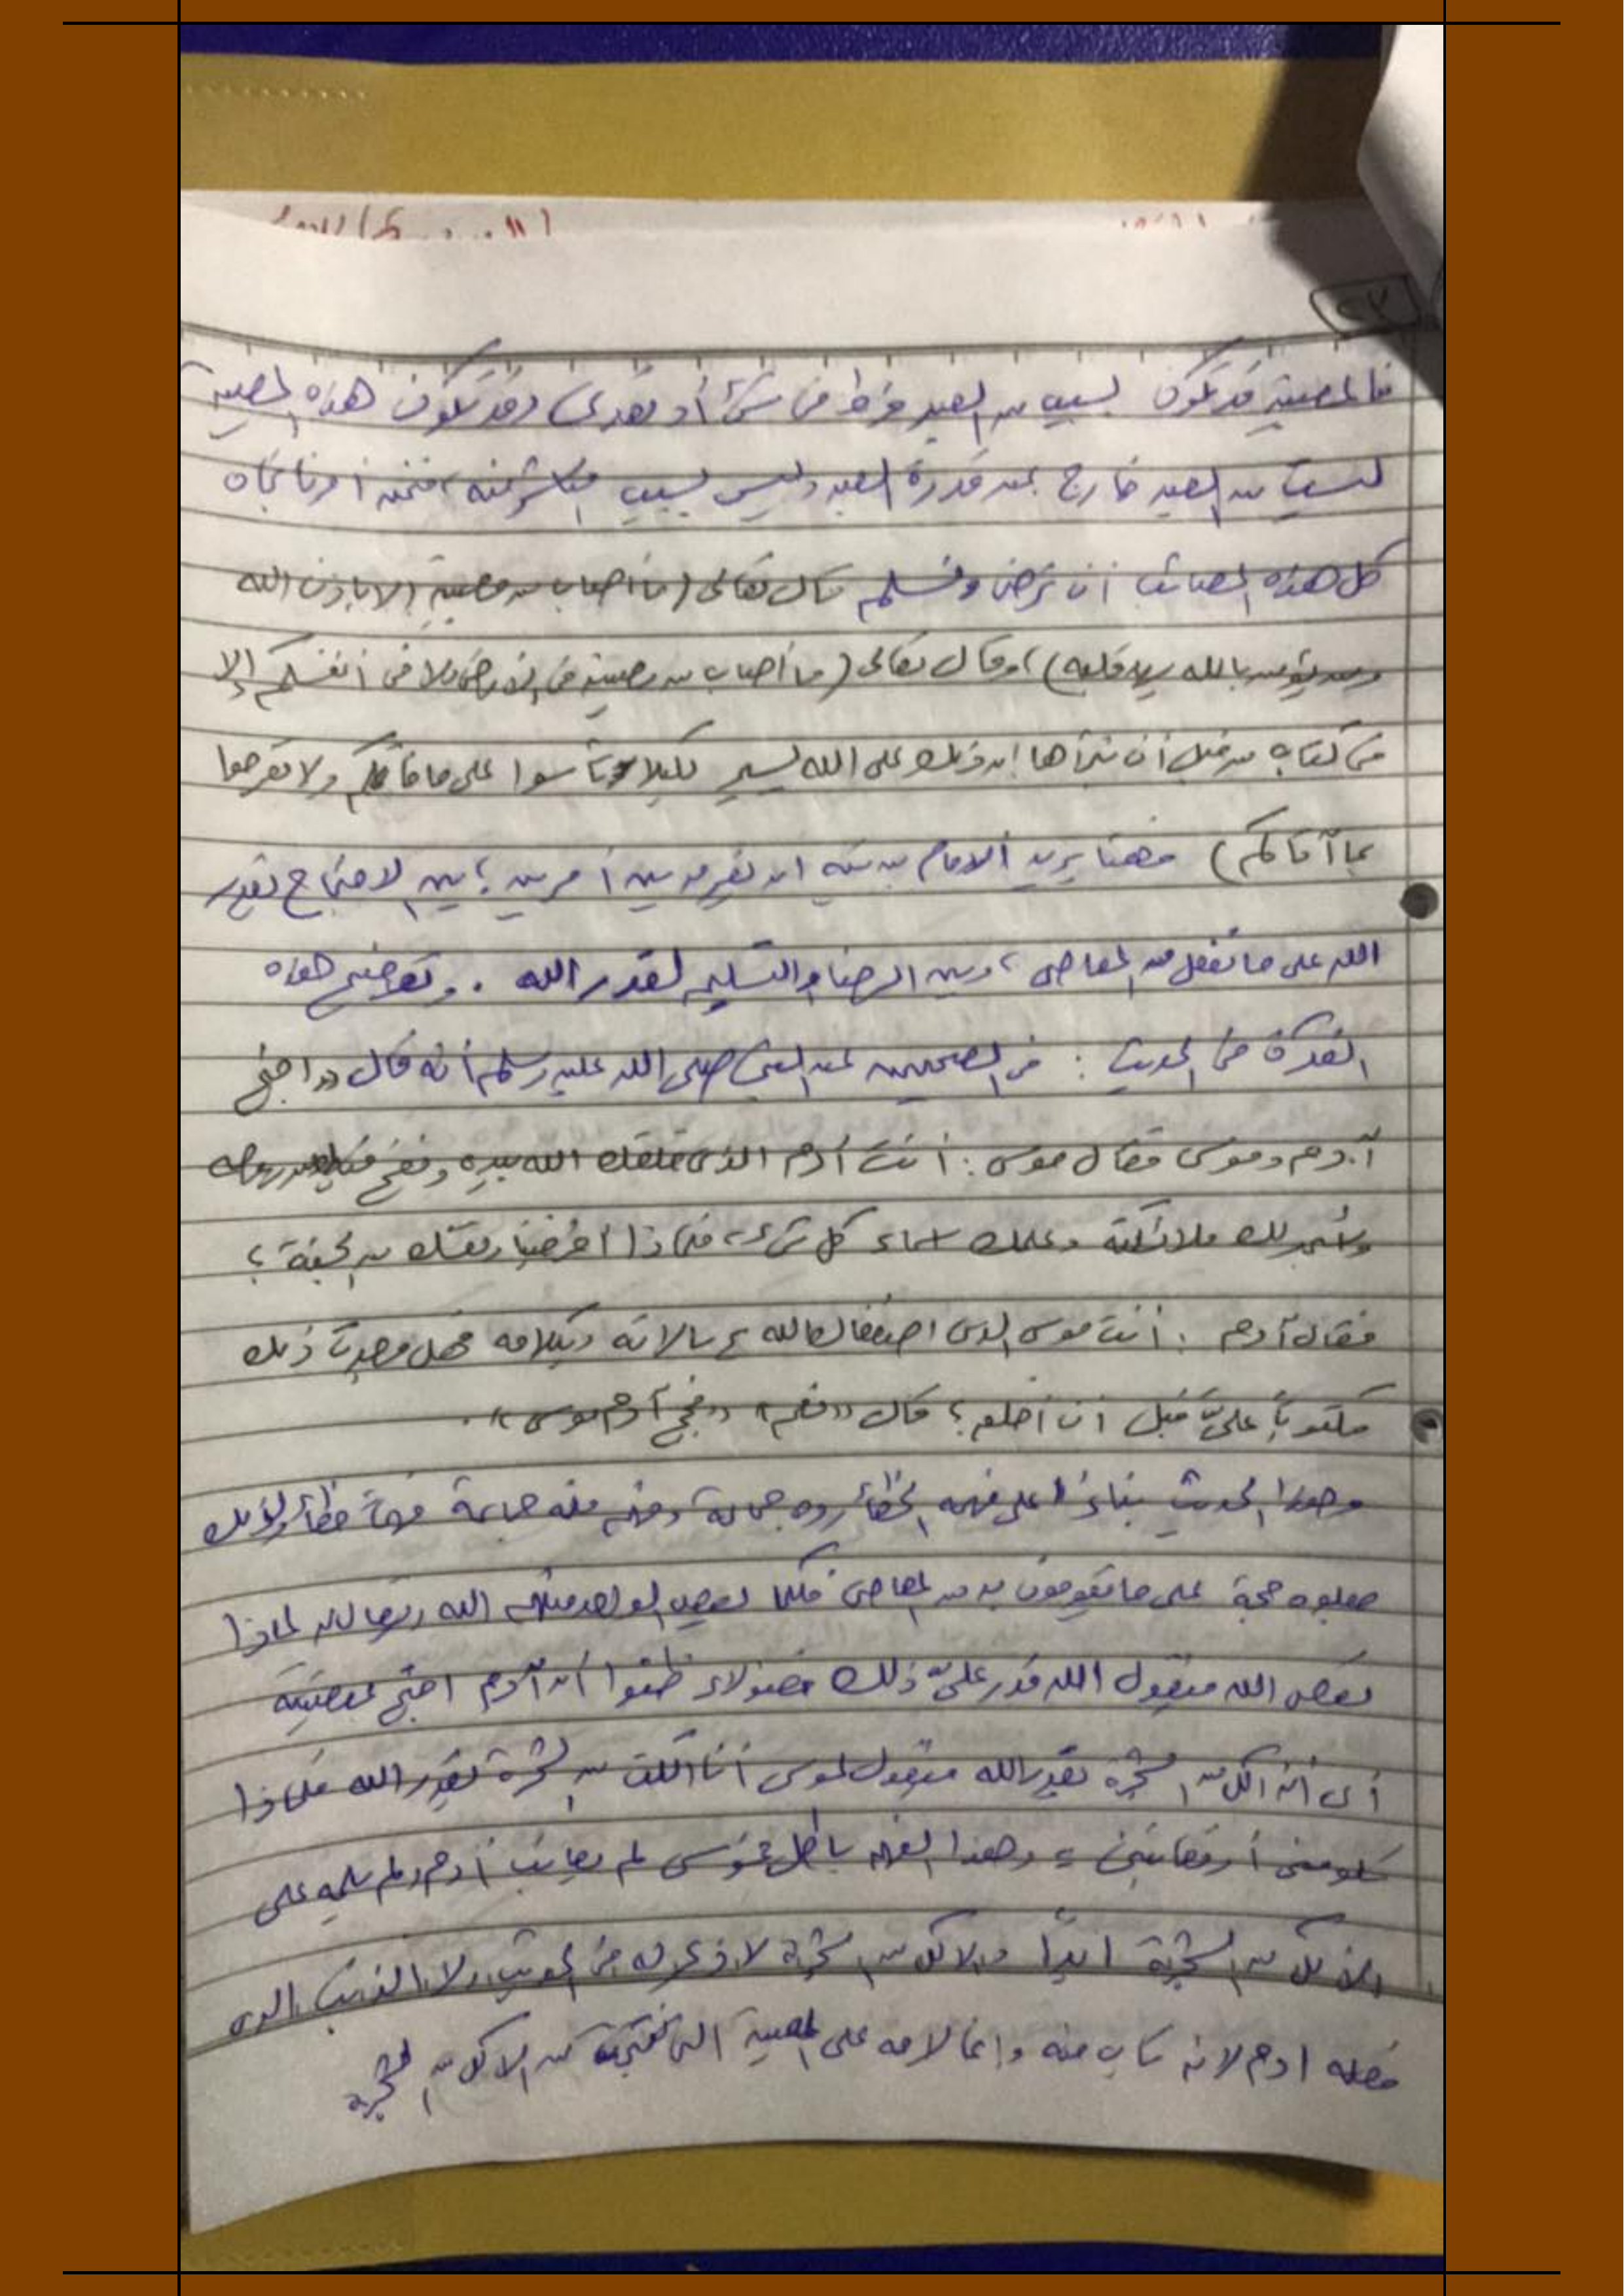 ٢٧
فالمصيبة قد تكون بسبب من العبد فرط في شئ أو تعدى وقد تكون هذه المصيبة
ليست من العبد خارج عن قدرة العبد وليس بسبب منه، فنحن أمرنا تجاه
كل هذه المصائب أن نرضى ونسلم قال تعالى (ما أصاب من مصيبة إلا بإذن الله
ومن يؤمن بالله يهد قلبه)، وقال تعالى (ما أصاب من مصيبة في الأرض ولا في أنفسكم إلا
في كتاب من قبل أن نبرأها إن ذلك على الله يسير لكيلا تأسوا على ما فاتكم ولا تفرحوا
بما آتاكم) فهنا يريد الامام أن نفرق بين أمرين؛ بين الاحتجاج بقدر
الله على ما نفعل من المعاصي، وبين الرضا والتسليم لقدر الله . وتوضيح هذه
الفكرة في الحديث : في الصحيحين عن النبي صلى الله عليه وسلم أنه قال «احتج
آدم وموسى فقال موسى : أنت آدم الذي خلقك الله بيده ونفخ فيك من روحه
وأسجد لك ملائكته وعلمك أسماء كل شئ، فلماذا أخرجتنا ونفسك من الجنة؟
فقال آدم : أنت موسى الذي اصطفاك الله برسالاته وبكلامه فهل وجدت ذلك
مكتوباً عليّ قبل أن أخلق؟ قال «نعم» «فحج آدم موسى».
وهذا الحديث بناءً على فهمه الخطأ رده جماعة وفهم منه جماعة فهماً خطأ
جعلوه حجة على ما يقومون به من المعاصي فكلما يعصي الواحد منهم الله ويقال له لماذا
تعصي الله فيقول الله قدر عليّ ذلك فهؤلاء ظنوا أن آدم احتج بمعصيته
أي أنه أكل من الشجرة بقدر الله فيقول لموسى أنا أكلت من الشجرة بقدر الله فلماذا
تلومني أو تعاتبني، وهذا الفهم باطل فموسى لم يعاتب آدم ولم يلمه على
الأكل من الشجرة أبداً والاكل من الشجرة لا ذكر له في الحديث ولا الذنب الذي
فعله ادم لانه تاب منه وإنما لامه على المصيبة التي نتجت عن الاكل من الشجرة